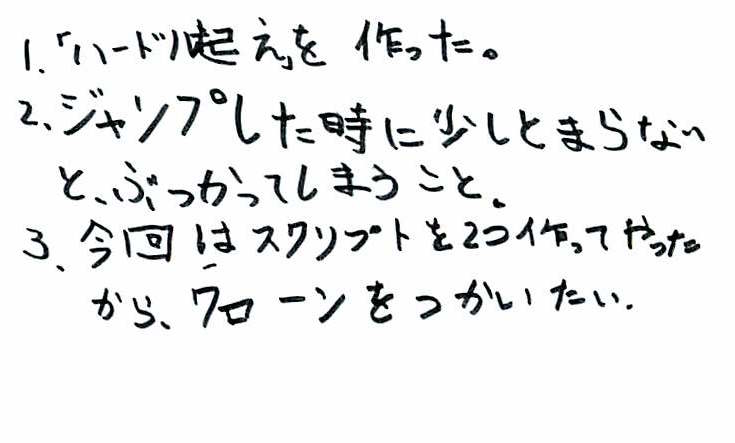 1.「ハードル起え」を作った。
2.ジャンプした時に少しとまらない
と、ぶつかってしまうこと。
3.今回はスクリプトを2つ作ってやった
から、クローンをつかいたい.